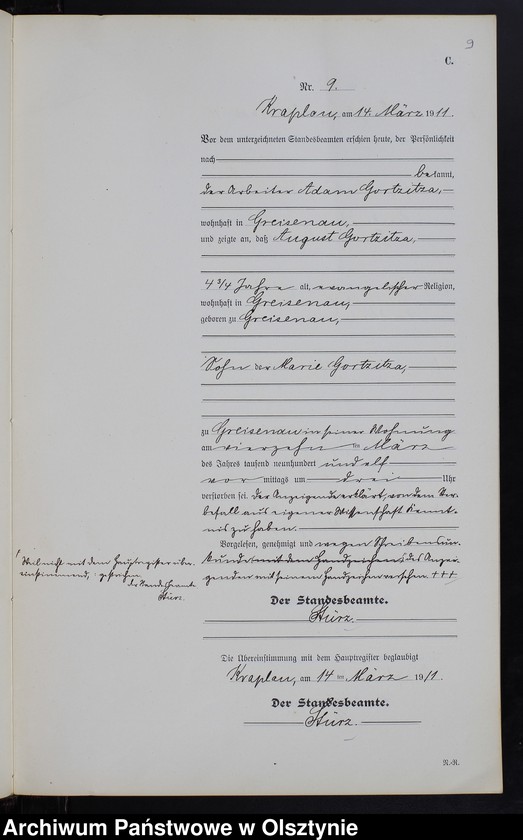 9
C.
Nr. 9.
Kraplau, am 14. März 1911.
Vor dem unterzeichneten Standesbeamten erschien heute, der Persönlichkeit
nach
bekannt,
der Arbeiter Adam Gortzitza,
wohnhaft in Greisenau,
und zeigte an, daß August Gortzitza,
4 3/4 Jahre alt, evangelischer Religion,
wohnhaft in Greisenau,
geboren zu Greisenau,
Sohn der Marie Gortzitza,
zu Greisenau in seiner Wohnung
am vierzehn ten März
des Jahres tausend neunhundert und elf
vor mittags um drei Uhr
verstorben sei. Der Anzeigende erklärt, von dem Ster-
befall aus eigener Wissenschaft Kennt-
nis zu haben.
Vorgelesen, genehmigt und wegen Schreibensun-
kunde mit dem Handzeichen des Anzei-
genden mit seinem Handzeichen versehen. +++
Weil nicht mit dem Hauptregister über-
einstimmend, gestrichen.
Der Standesbeamte
Stürz.
Der Standesbeamte.
Stürz.
Die Übereinstimmung mit dem Hauptregister beglaubigt
Kraplau, am 14 ten März 1911.
Der Standesbeamte.
Stürz.
R.-R.
Archiwum Państwowe w Olsztynie